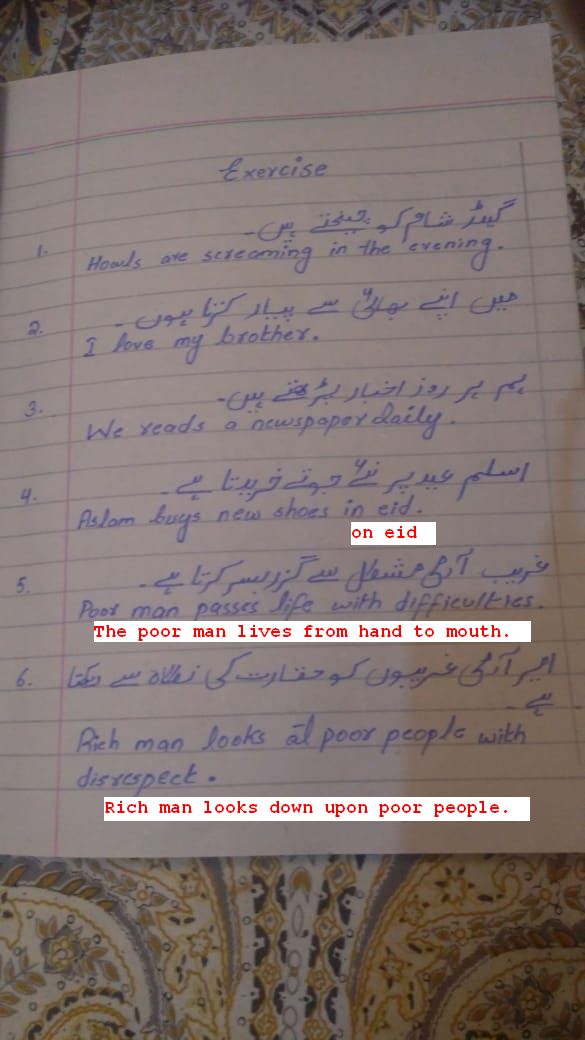 Exercise
1. گیدڑ شام کو چیختے ہیں۔
Howls are screaming in the evening.
2. میں اپنے بھائی سے پیار کرتا ہوں۔
I love my brother.
3. ہم ہر روز اخبار پڑھتے ہیں۔
We reads a newspaper daily.
4. اسلم عید پر نئے جوتے خریدتا ہے۔
Aslam buys new shoes in eid.
on eid
5. غریب آدمی مشکل سے گزر بسر کرتا ہے۔
Poor man passes life with difficulties.
The poor man lives from hand to mouth.
6. امیر آدمی غریبوں کو حقارت کی نگاہ سے دیکھتا
ہے۔
Rich man looks at poor people with
disrespect.
Rich man looks down upon poor people.